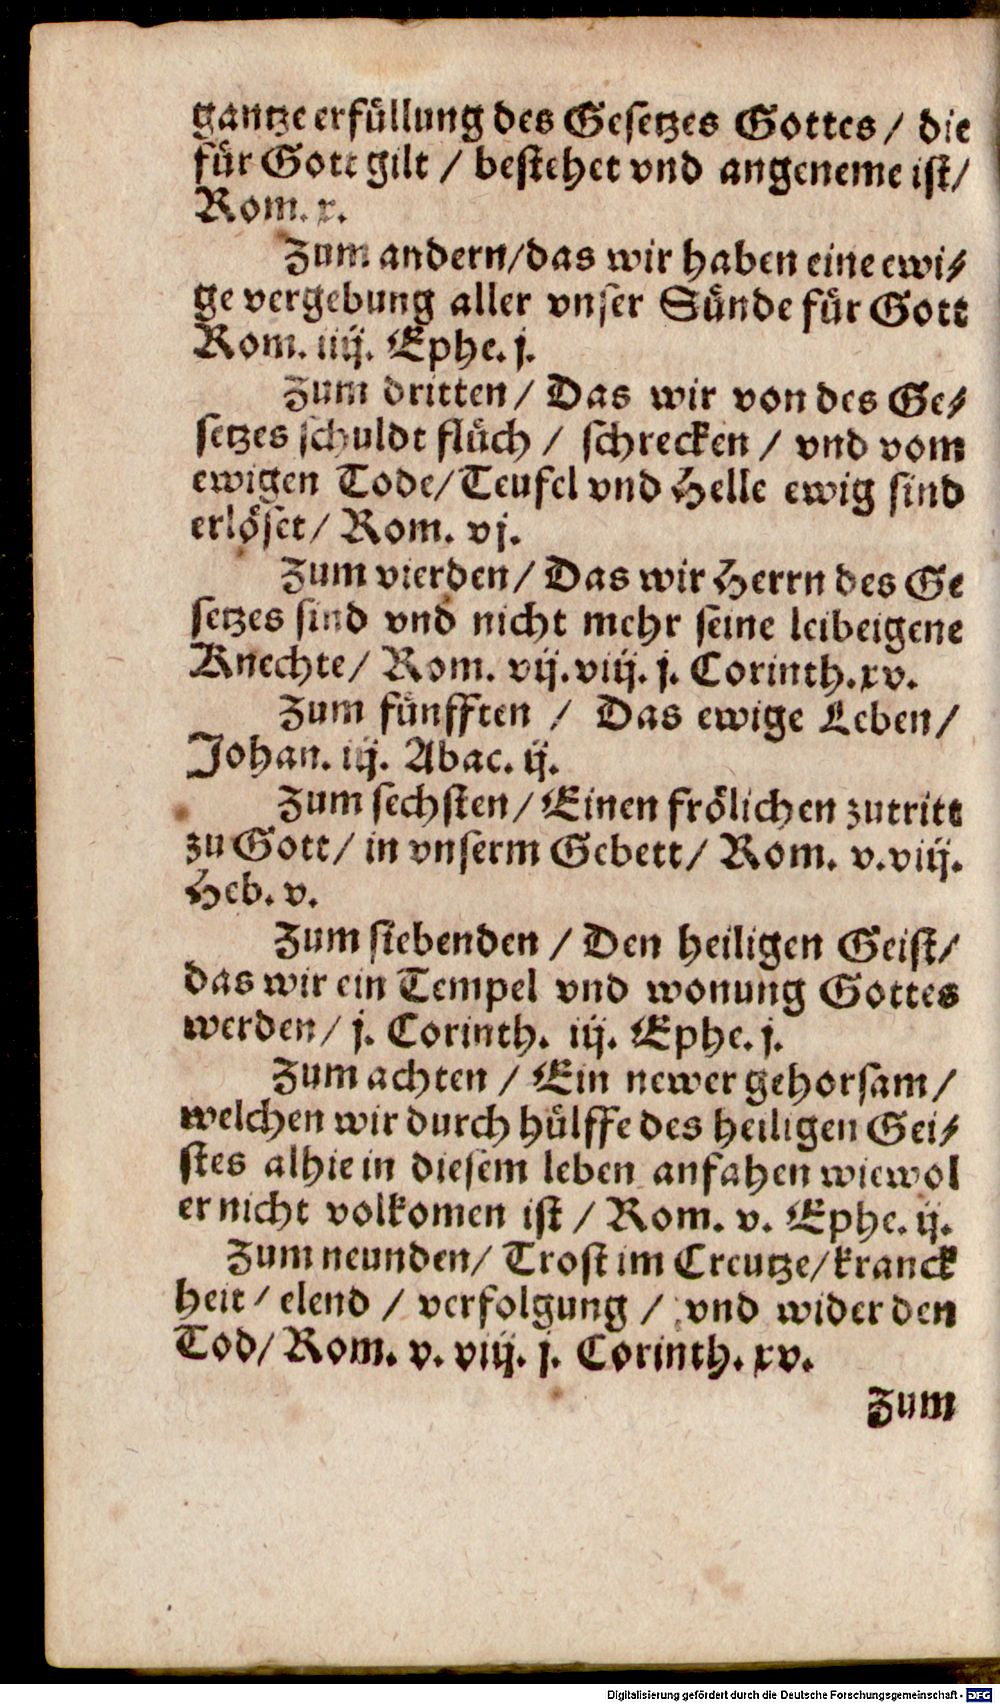 gantze erfüllung des Gesetzes Gottes / die
für Gott gilt / bestehet vnd angeneme ist /
Rom. x.
Zum andern / das wir haben eine ewi-
ge vergebung aller vnser Sünde für Gott
Rom. iiij. Ephe. j.
Zum dritten / Das wir von des Ge-
setzes schuldt flüch / schrecken / vnd vom
ewigen Tode / Teufel vnd Helle ewig sind
erlöset / Rom. vj.
Zum vierden / Das wir Herrn des Ge
setzes sind vnd nicht mehr seine leibeigene
Knechte / Rom. vij. viij. j. Corinth. xv.
Zum fünfften / Das ewige Leben /
Johan. iij. Abac. ij.
Zum sechsten / Einen frölichen zutritt
zu Gott / in vnserm Gebett / Rom. v. viij.
Heb. v.
Zum siebenden / Den heiligen Geist /
das wir ein Tempel vnd wonung Gottes
werden / j. Corinth. iij. Ephe. j.
Zum achten / Ein newer gehorsam /
welchen wir durch hülffe des heiligen Gei-
stes alhie in diesem leben anfahen wiewol
er nicht volkomen ist / Rom. v. Ephe. ij.
Zum neunden / Trost im Creutze / kranck
heit / elend / verfolgung / vnd wider den
Tod / Rom. v. viij. j. Corinth. xv.
Zum
Digitalisierung gefördert durch die Deutsche Forschungsgemeinschaft - DFG